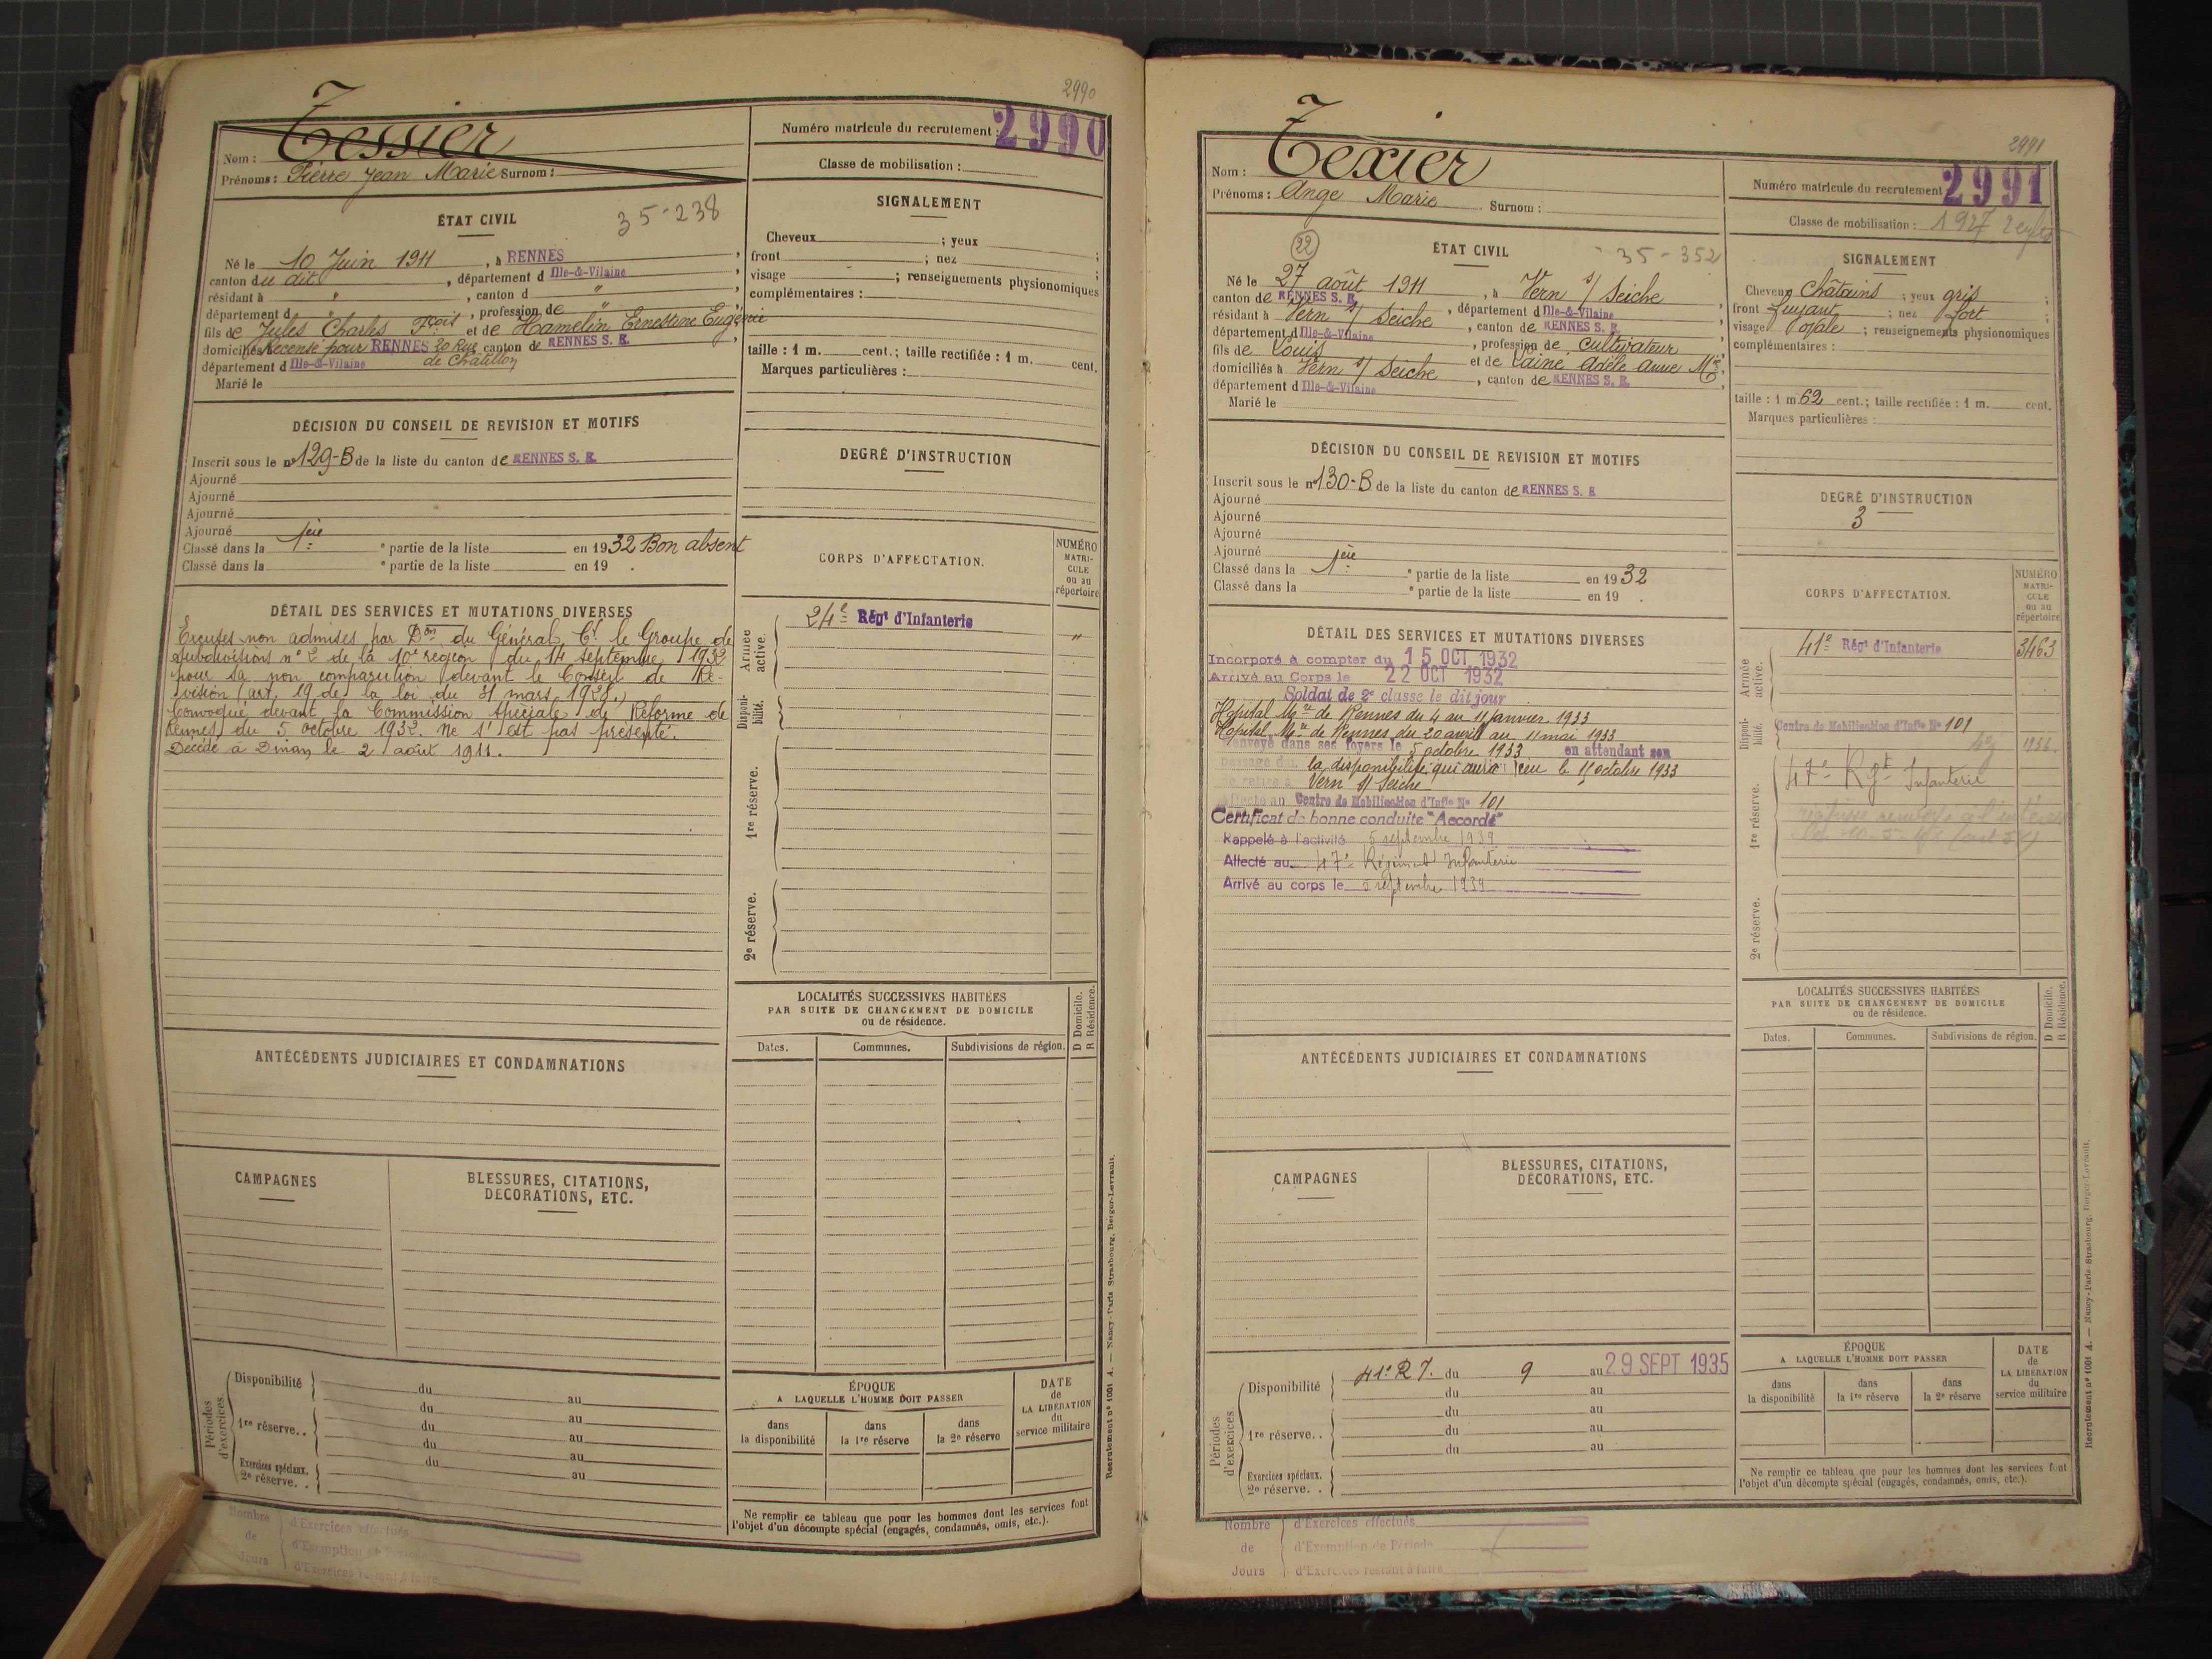 2990
Tessier
Nom :
Prénoms : Pierre Jean Marie Surnom :
Numéro matricule du recrutement : 2990
Classe de mobilisation :
ÉTAT CIVIL
35-238
Né le 10 Juin 1911, à RENNES,
canton du dit, département d Ille-&-Vilaine,
résidant à ", canton d ",
département d ", profession de ",
fils de Jules Charles Fçois et de Hamelin Ernestine Eugénie
domiciliés Recensé pour RENNES 20 Rue canton de RENNES S. E.,
département d Ille-&-Vilaine de Châtillon
Marié le
SIGNALEMENT
Cheveux ; yeux ;
front ; nez ;
visage ; renseignements physionomiques
complémentaires :
taille : 1 m. cent.; taille rectifiée : 1 m. cent.
Marques particulières :
DÉCISION DU CONSEIL DE REVISION ET MOTIFS
Inscrit sous le n° 129-B de la liste du canton de RENNES S. E.
Ajourné
Ajourné
Ajourné
Ajourné
Classé dans la 1ère ᵉ partie de la liste en 1932 Bon absent
Classé dans la ᵉ partie de la liste en 19 .
DEGRÉ D'INSTRUCTION
DÉTAIL DES SERVICES ET MUTATIONS DIVERSES
Excuses non admises par Don du Général Ct le Groupe de
subdivisions n° 2 de la 10e région du 14 septembre 1932
pour sa non comparution devant le Conseil de Ré-
vision (art. 19 de la loi du 31 mars 1928.)
Convoqué devant la Commission Spéciale de Réforme de
Rennes du 5 octobre 1932. Ne s'est pas présenté.
Décédé à Dinan le 2 août 1911.
CORPS D'AFFECTATION.
NUMÉRO MATRI-CULE ou au répertoire
Armée active.
24e Régt d'Infanterie "
Disponi-bilité.
1re réserve.
2e réserve.
LOCALITÉS SUCCESSIVES HABITÉES
PAR SUITE DE CHANGEMENT DE DOMICILE
ou de résidence.
D Domicile.
R Résidence.
Dates. Communes. Subdivisions de région.
ANTÉCÉDENTS JUDICIAIRES ET CONDAMNATIONS
CAMPAGNES
BLESSURES, CITATIONS,
DÉCORATIONS, ETC.
Périodes d'exercices.
Disponibilité du au
du au
1re réserve.. du au
du au
du au
Exercices spéciaux.
2e réserve. .
ÉPOQUE
A LAQUELLE L'HOMME DOIT PASSER
dans la disponibilité
dans la 1re réserve
dans la 2e réserve
DATE de LA LIBÉRATION du service militaire
Ne remplir ce tableau que pour les hommes dont les services font
l'objet d'un décompte spécial (engagés, condamnés, omis, etc.).
Nombre de Jours
d'Exercices effectués
d'Exemption de Période
d'Exercices restant à faire
Recrutement n° 1001 A. — Nancy-Paris-Strasbourg, Berger-Levrault.
2991
Texier
Nom :
Prénoms : Ange Marie Surnom :
Numéro matricule du recrutement 2991
Classe de mobilisation : 1927
22
ÉTAT CIVIL
35-352
Né le 27 août 1911, à Vern s/ Seiche,
canton de RENNES S. E., département d Ille-&-Vilaine
résidant à Vern s/ Seiche, canton de RENNES S. E.,
département d Ille-&-Vilaine, profession de cultivateur,
fils de Louis et de Lainé Adèle Anne Mie,
domiciliés à Vern s/ Seiche, canton de RENNES S. E.,
département d Ille-&-Vilaine
Marié le
SIGNALEMENT
Cheveux Châtains ; yeux gris ;
front fuyant ; nez fort ;
visage ovale ; renseignements physionomiques
complémentaires :
taille : 1 m 62 cent.; taille rectifiée : 1 m. cent.
Marques particulières :
DÉCISION DU CONSEIL DE REVISION ET MOTIFS
Inscrit sous le n° 130-B de la liste du canton de RENNES S. E
Ajourné
Ajourné
Ajourné
Ajourné
Classé dans la 1ère ᵉ partie de la liste en 1932
Classé dans la ᵉ partie de la liste en 19 .
DEGRÉ D'INSTRUCTION
3
DÉTAIL DES SERVICES ET MUTATIONS DIVERSES
Incorporé à compter du 15 OCT 1932
Arrivé au Corps le 22 OCT 1932
Soldat de 2e classe le dit jour
Hopital Mre de Rennes du 4 au 11 janvier 1933
Hopital Mre de Rennes du 20 avril au 11 mai 1933
Renvoyé dans ses foyers le 5 octobre 1933 en attendant son
passage dans la disponibilité qui aura lieu le 15 octobre 1933
Se retire à Vern s/ Seiche
Affecté au Centre de Mobilisation d'Infie N° 101
Certificat de bonne conduite "Accordé"
Rappelé à l'activité 5 septembre 1939
Affecté au 47e Régiment Infanterie
Arrivé au corps le 5 septembre 1939
CORPS D'AFFECTATION.
NUMÉRO MATRI-CULE ou au répertoire
Armée active.
41e Régt d'Infanterie 3463
Disponi-bilité.
Centre de Mobilisation d'Infie N° 101
1re réserve.
47e Rgt Infanterie
2e réserve.
LOCALITÉS SUCCESSIVES HABITÉES
PAR SUITE DE CHANGEMENT DE DOMICILE
ou de résidence.
D Domicile.
R Résidence.
Dates. Communes. Subdivisions de région.
ANTÉCÉDENTS JUDICIAIRES ET CONDAMNATIONS
CAMPAGNES
BLESSURES, CITATIONS,
DÉCORATIONS, ETC.
Périodes d'exercices.
Disponibilité 41e R I. du 9 au 29 SEPT 1935
du au
du au
1re réserve. . du au
du au
Exercices spéciaux.
2e réserve. .
ÉPOQUE
A LAQUELLE L'HOMME DOIT PASSER
dans la disponibilité
dans la 1re réserve
dans la 2e réserve
DATE de LA LIBÉRATION du service militaire
Ne remplir ce tableau que pour les hommes dont les services font
l'objet d'un décompte spécial (engagés, condamnés, omis, etc.).
Nombre de Jours
d'Exercices effectués
d'Exemption de Période
d'Exercices restant à faire
Recrutement n° 1001 A. — Nancy-Paris-Strasbourg, Berger-Levrault.